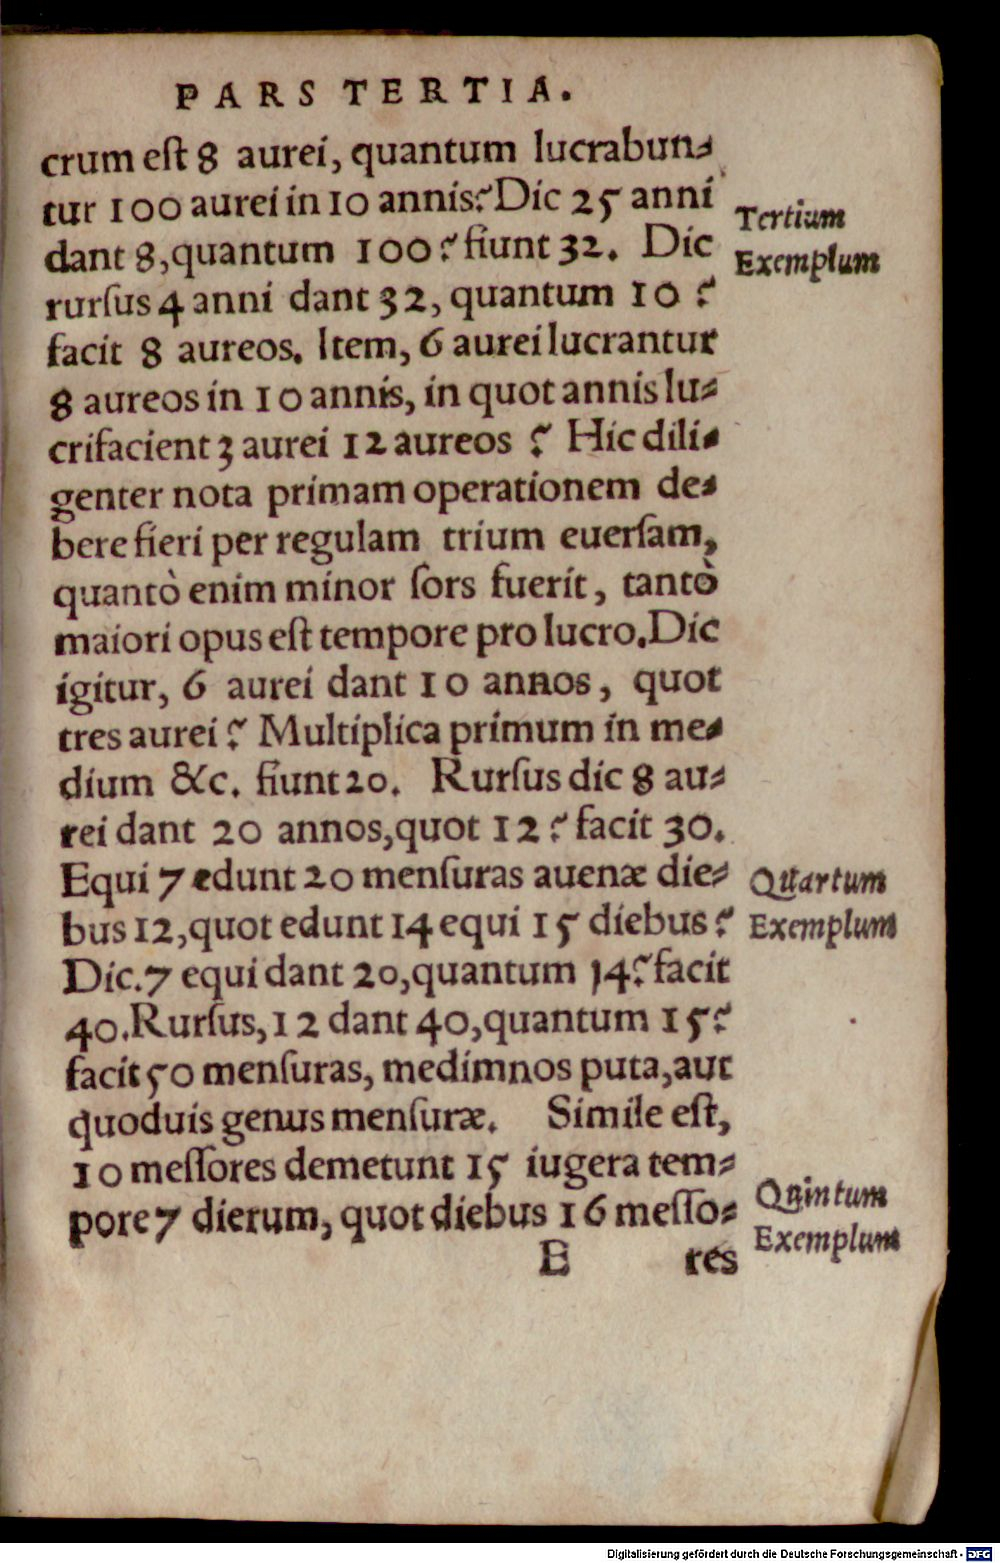 PARS TERTIA.
crum eſt 8 aurei, quantum lucrabun⸗
tur 100 aurei in 10 annis? Dic 25 anni
dant 8, quantum 100? fiunt 32. Dic
rurſus 4 anni dant 32, quantum 10?
facit 8 aureos. Item, 6 aurei lucrantur
8 aureos in 10 annis, in quot annis lu⸗
crifacient 3 aurei 12 aureos? Hic dili⸗
genter nota primam operationem de⸗
bere fieri per regulam trium euerſam,
quantò enim minor ſors fuerit, tantò
maiori opus eſt tempore pro lucro. Dic
igitur, 6 aurei dant 10 annos, quot
tres aurei? Multiplica primum in me⸗
dium &c. fiunt 20. Rurſus dic 8 au⸗
rei dant 20 annos, quot 12? facit 30.
Equi 7 edunt 20 menſuras auenæ die⸗
bus 12, quot edunt 14 equi 15 diebus?
Dic. 7 equi dant 20, quantum 14? facit
40. Rurſus, 12 dant 40, quantum 15?
facit 50 menſuras, medimnos puta, aut
quoduis genus menſuræ. Simile eſt,
10 meſſores demetunt 15 iugera tem⸗
pore 7 dierum, quot diebus 16 meſſo⸗
E res
Tertium
Exemplum
Quartum
Exemplum
Quintum
Exemplum
Digitalisierung gefördert durch die Deutsche Forschungsgemeinschaft - DFG